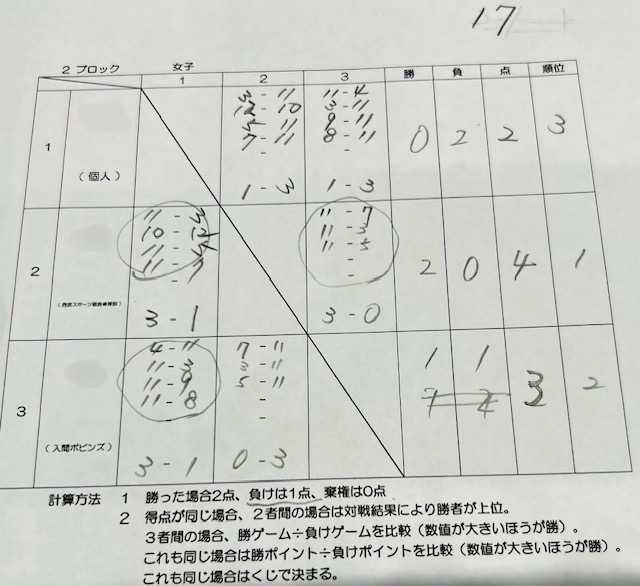 17
2 ブロック 女子
1 2 3 勝 負 点 順位
1
(個人)
3-11
12-10
11
7-11
-
1-3
11-4
3-11
9-11
8-11
-
1-3
0 2 2 3
2
11-3
10-12
11
11-7
-
3-1
11-7
11-3
11-5
-
-
3-0
2 0 4 1
3
(入間ボビンズ)
4-11
11-3
11-9
11-8
-
3-1
7-11
3-11
5-11
-
-
0-3
1 1 3 2
計算方法 1 勝った場合2点、負けは1点、棄権は0点
2 得点が同じ場合、2者間の場合は対戦結果により勝者が上位。
3者間の場合、勝ゲーム÷負けゲームを比較(数値が大きいほうが勝)。
これも同じ場合は勝ポイント÷負けポイントを比較(数値が大きいほうが勝)。
これも同じ場合はくじで決まる。